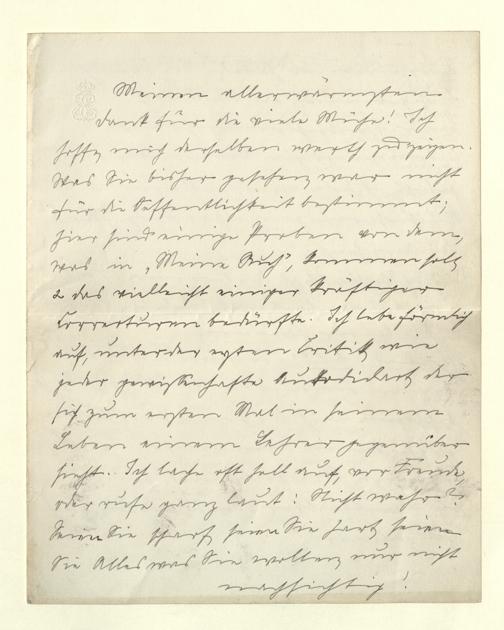 Meinen allerwärmsten
Dank für die viele Mühe! Ich
hoffe mich derselben werth zu zeigen.
Was Sie bisher gesehen war nicht
für die Öffentlichkeit bestimmt;
hier sind einige Proben von dem,
was in „Meine Buch", kommen soll
& das vielleicht einiger kräftiger
Correcturen bedürfte. Ich lebe förmlich
auf, unter der ersten Critik wie
jeder gewissenhafte Autodidact der
sich zum ersten Mal in seinem
Leben einem Lehrer gegenüber
sieht. Ich lache oft hell auf, vor Freude,
oder rufe ganz laut: Nicht wahr?
Seien Sie scharf, seien Sie hart, seien
Sie Alles was Sie wollen, nur nicht
nachsichtig!